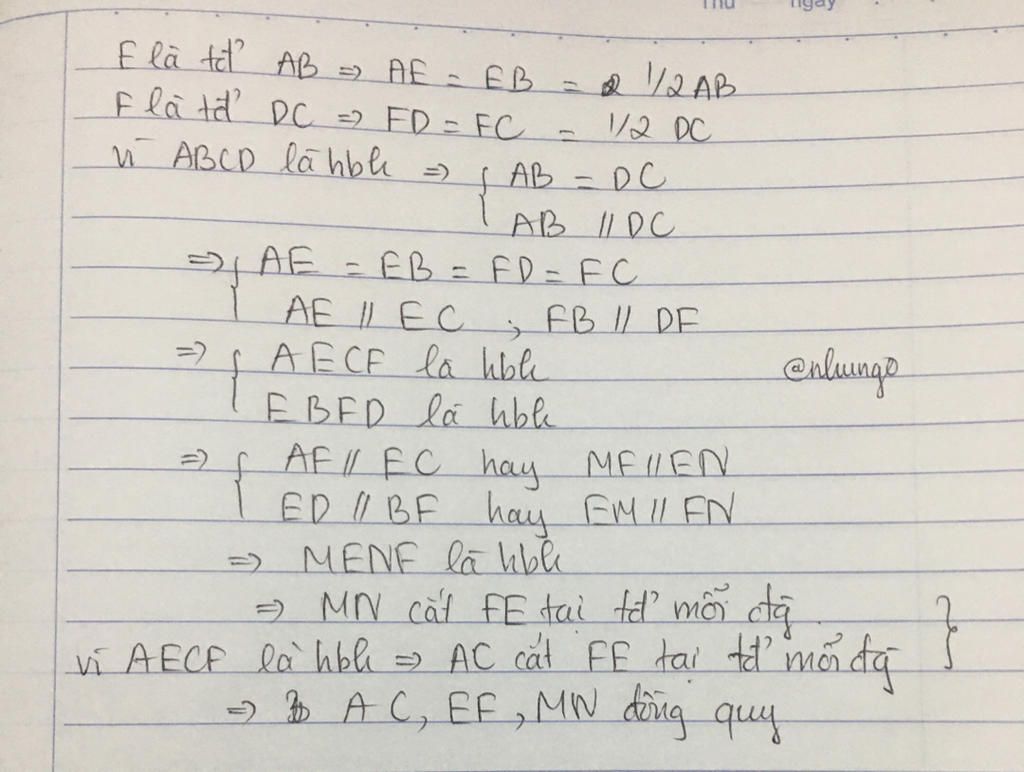 Thứ ngày
E là tđ' AB => AE = EB = 1/2AB
F là tđ' DC => FD = FC = 1/2 DC
vì ABCD là hbh => { AB = DC
AB // DC
=> { AE = EB = FD = FC
AE // EC ; FB // DF
=> { AECF là hbh
EBFD là hbh
@nhung
=> { AF // EC hay MF // EN
ED // BF hay EM // FN
=> MENF là hbh
=> MN cắt FE tại tđ' mỗi đg
vì AECF là hbh => AC cắt FE tại tđ' mỗi đg }
=> AC, EF, MN đồng quy